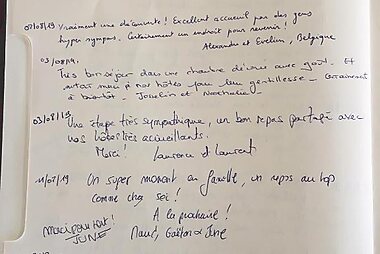 02/08/19 Vraiment une découverte! Excellent accueil par des gens
hyper sympas. Certainement un endroit pour revenir!
Alexandre et Evelien, Belgique
03/08/19.
Très bon séjour dans une chambre décorée avec goût. Et
surtout merci à nos hôtes pour leur gentillesse - Certainement
à bientôt - Jocelin et Nathalie
03/08/19
Une étape très sympathique, un bon repas partagé avec
nos hôtes très accueillants.
Merci! Laurence et Laurent
11/08/19 Un super moment en famille, un repas au top
comme chez soi!
A la prochaine!
Merci pour tout!
JUNE
Maud, Gaëtan & June